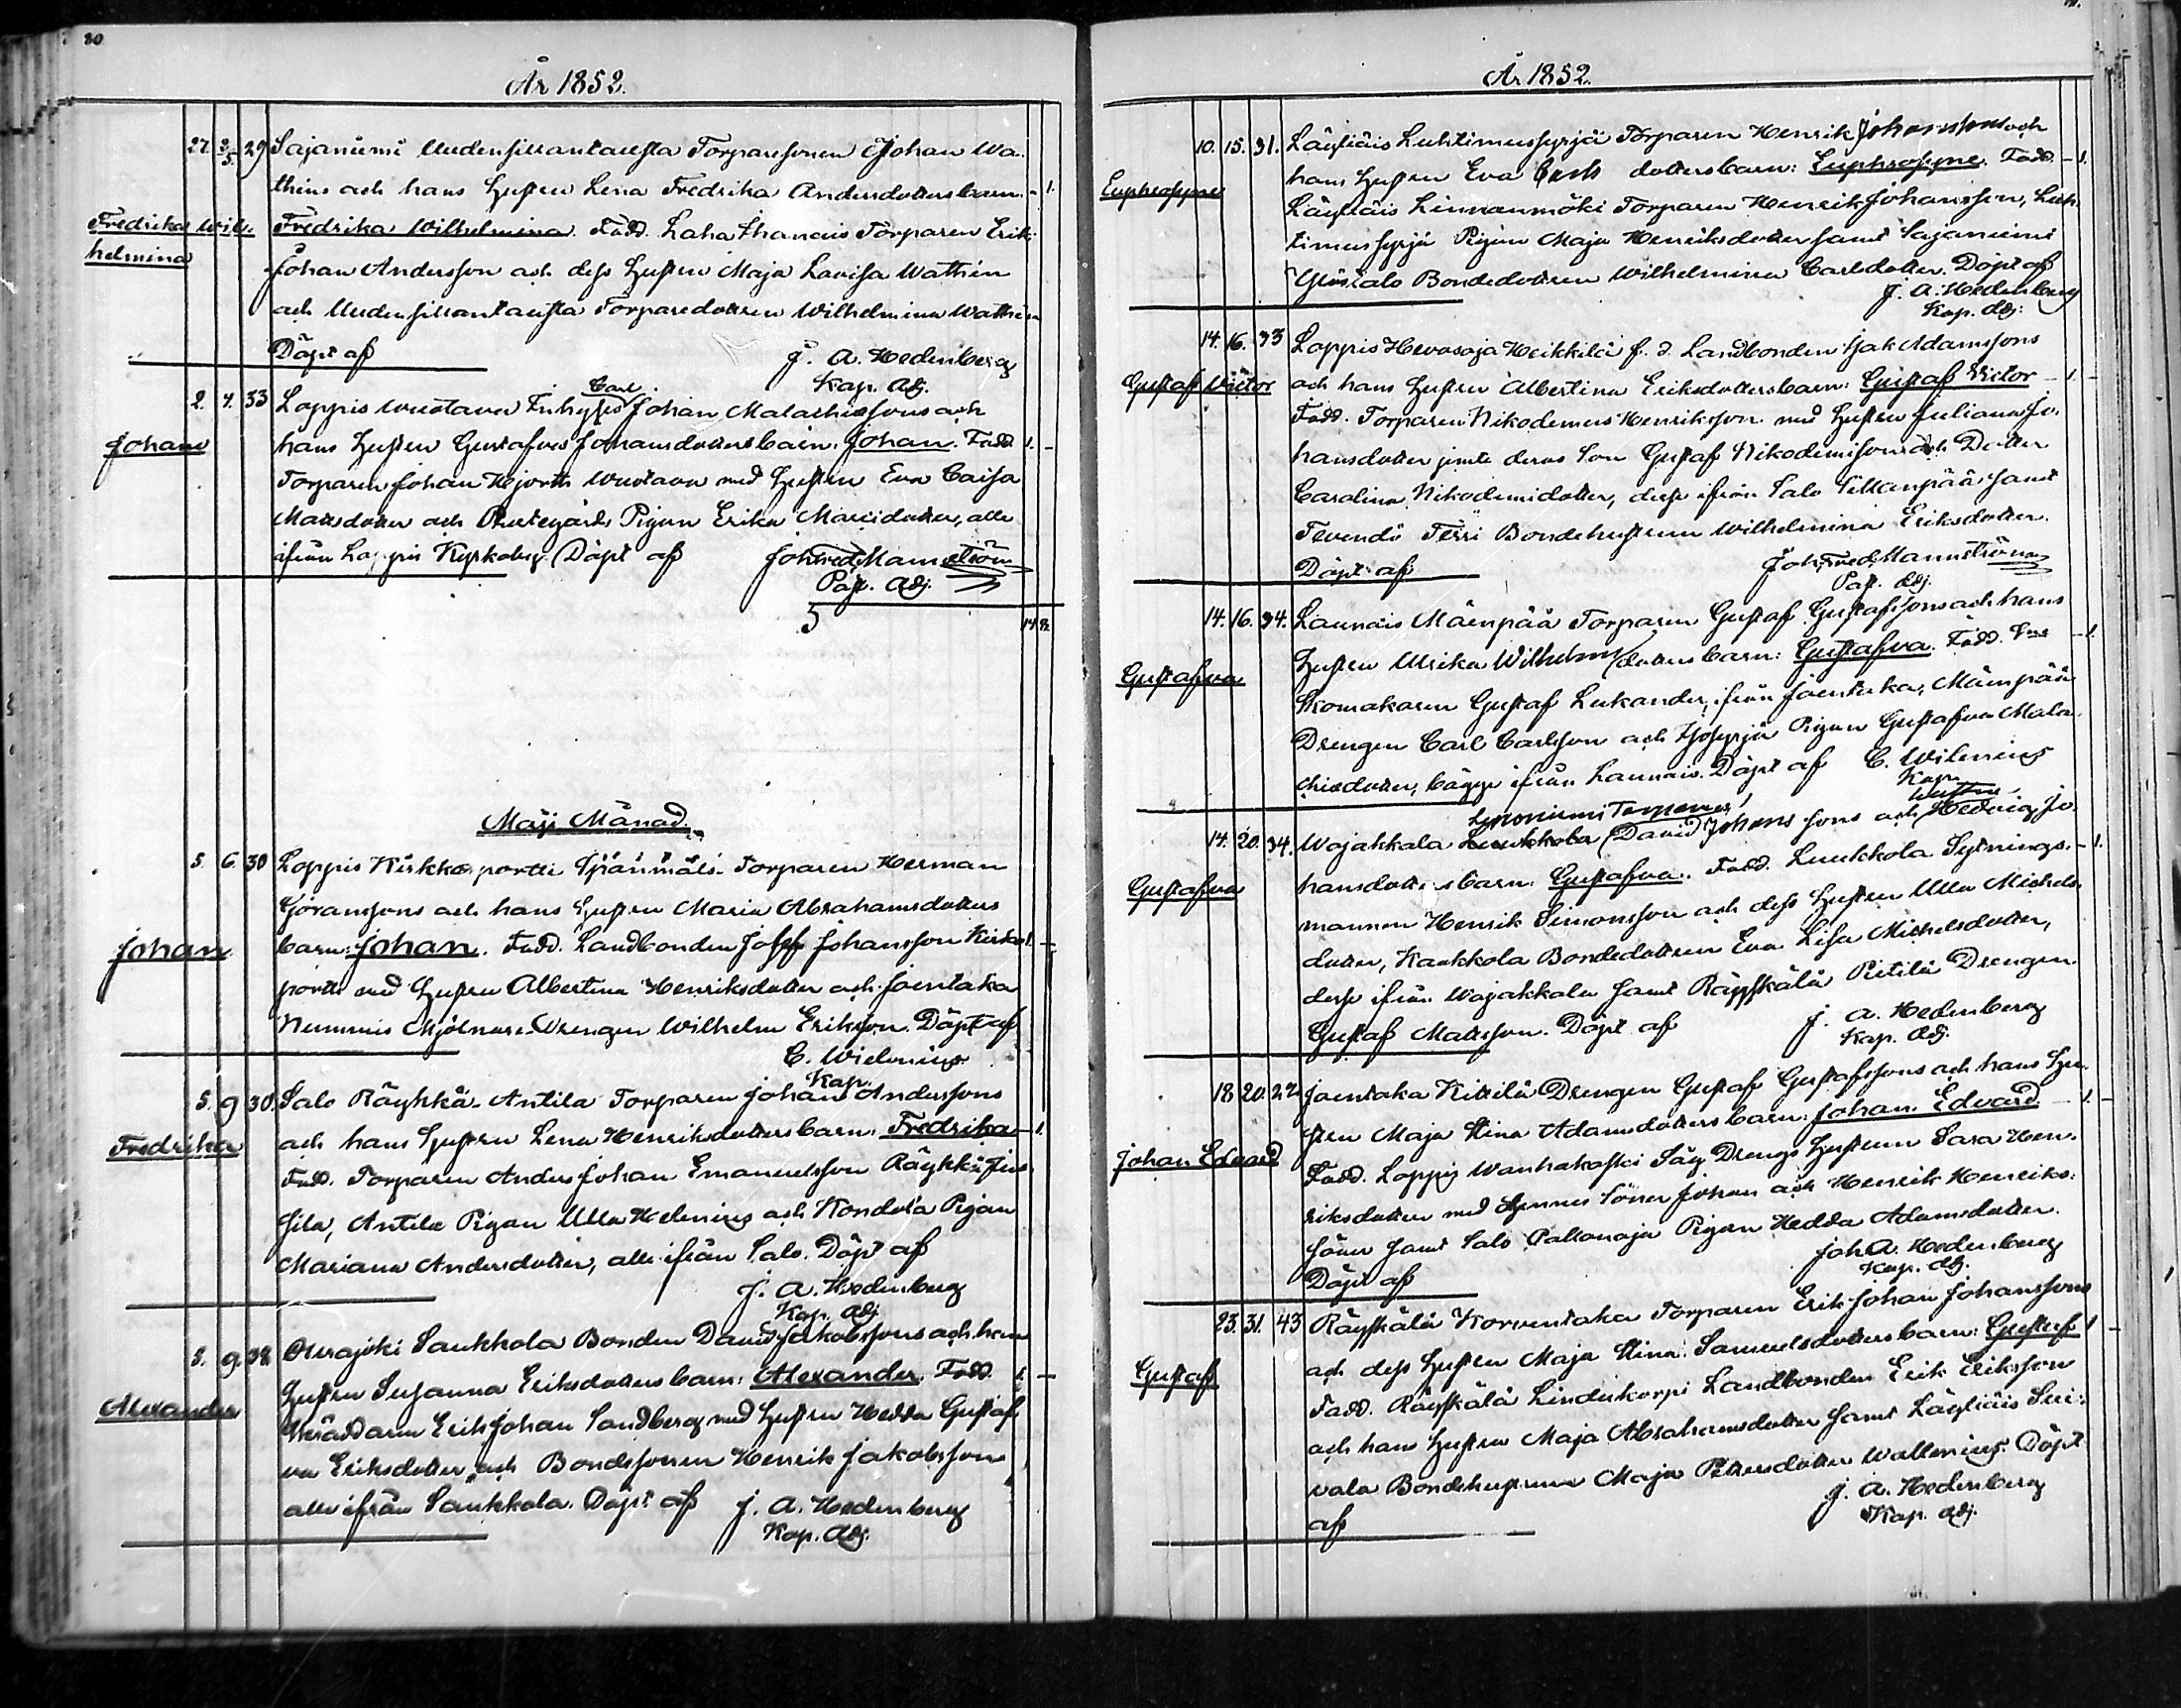 80
År 1852.
27. 2/5. 29 Sajaniemi Uudensillantausta Torparesonen Johan Wa-
thens och hans Hustru Lena Fredrika Andersdotters barn: 1.
Fredrika Wil-
helmina
Fredrika Wilhelmina. Fadd. Torparen Erik
Johan Andersson och dess Hustru Maja Lovisa Wathén
och Uudensillantausta Torparedottren Wilhelmina Wathén
Döpt af J. A. Hedenberg
Kap. Adj.
Carl
2. 4. 33 Loppis Johan Malachiassons och
Johan
hans Hustru Gustafva Johansdotters barn: Johan. Fadd. 1.
Torparen Johan Hjorth med Hustru Eva Caisa
Matsdotter och Prestegårds Pigan Erika, alla
ifrån Loppis Kyrkoby. Döpt af Joh. Fred. Mannström
Past. Adj.
5
Maji Månad.
5. 6. 30 Loppis Kirkkoportti Torparen Herman
Göranssons och hans Hustru Maria Abrahamsdotters
Johan
barn: Johan. Fadd. Landbonden Josef Johansson Kirkko- 1.
portti med Hustru Albertina Henriksdotter och Joentaka
Nummis Mjölnare Drengen Wilhelm Eriksson. Döpt af
C. Wilenius
Kap.
5. 9 30. Salo Räyhkä Antila Torparen Johan Anderssons
och hans Hustru Lena Henriksdotters barn: Fredrika 1.
Fredrika
Fadd. Torparen Anders Johan Emanuelsson Räyhkä Jus-
sila, Antila Pigan Ulla Helenius och Kondola Pigan
Mariana Andersdotter, alla ifrån Salo. Döpt af
J. A. Hedenberg
Kap. Adj.
5. 9. 38. Ourajoki Saukkola Bonden David Jakobssons och hans
Hustru Susanna Eriksdotters barn: Alexander. Fadd. 1.
Alexander
Skräddaren Erik Johan Sandberg med Hustru Hedda Gustaf-
va Eriksdotter och Bondesonen Henrik Jakobsson
alla ifrån Saukkola. Döpt af J. A. Hedenberg
Kap. Adj.
År 1852.
10. 15. 31. Läyliäis Luhtimussyrjä Torparen Henrik Johanssons och
Euphrosyne
hans Hustru Eva dotters barn: Euphrosyne. Fadd. 1.
Läyliäis Linnanmäki Torparen Henrik Johansson, Luh-
timussyrjä Pigan Maja Henriksdotter samt Sajaniemi
Ylöstalo Bondedottren Wilhelmina Carlsdotter. Döpt af
J. A. Hedenberg
Kap. Adj.
14. 16. 33 Loppis Hevosoja Heikkilä f. d. Landbonden Isak Adamssons
Gustaf Victor
och hans Hustru Albertina Eriksdotters barn: Gustaf Victor 1.
Fadd. Torparen Nikodemus Henriksson med Hustru Juliana Jo-
hansdotter jemte deras Son Gustaf Nikodemisson och Dotter
Carolina Nikodemidotter, desse ifrån Salo Sillanpää samt
Tevendö Terri Bondehustrun Wilhelmina Eriksdotter.
Döpt af Joh. Fred. Mannström
Past. Adj.
14. 16. 34. Launois Mäenpää Torparen Gustaf Gustafssons och hans
Hustru Ulrika Wilhelmsdotters barn: Gustafva. Fadd. 1.
Gustafva
Skomakaren Gustaf Lukander, ifrån Joentaka, Mäenpää
Drengen Carl Carlsson och Pigan Gustafva Mala-
chiedotter, bägge ifrån Launois. Döpt af C. Wilenius
Kap.
14. 20. 34. Wojakkala Luukkola David Johanssons och Hedvig Jo-
hansdotters barn: Gustafva. Fadd. Luukkola Sytnings- 1.
Gustafva
mannen Henrik Simonsson och dess Hustru Ulla Michels-
dotter, Kaukkola Bondedottren Eva Lisa Michelsdotter,
desse ifrån Wojakkala samt Räyskälä Pietilä Drengen
Gustaf Matsson. Döpt af J. A. Hedenberg
Kap. Adj.
18 20. 22 Joentaka Kittilä Drengen Gustaf Gustafssons och hans Hu-
stru Maja Stina Adamsdotters barn: Johan Edvard 1.
Johan Edvard
Fadd. Loppis Wanhakoski Såg Drengs Hustrun Sara Hen-
riksdotter med hennes Söner Johan och Henrik Henriks-
söner samt Salo Pallonoja Pigan Hedda Adamsdotter.
Döpt af Joh. A. Hedenberg
Kap. Adj.
23. 31. 43 Räyskälä Korventaka Torparen Erik Johan Johanssons
och dess Hustru Maja Stina Samuelsdotters barn: Gustaf 1
Gustaf
Fadd. Räyskälä Lindukorpi Landbonden Erik Eriksson
och hans Hustru Maja Abrahamsdotter samt Läyliäis Sui-
vala Bondehustrun Maja Pettersdotter Wallenius. Döpt
af J. A. Hedenberg
Kap. Adj.